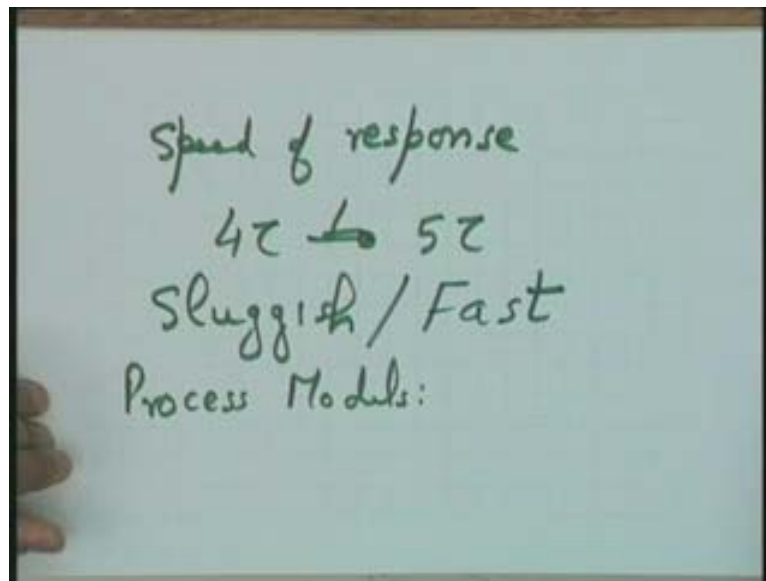 Speed of response
4τ to 5τ
Sluggish / Fast
Process Models: